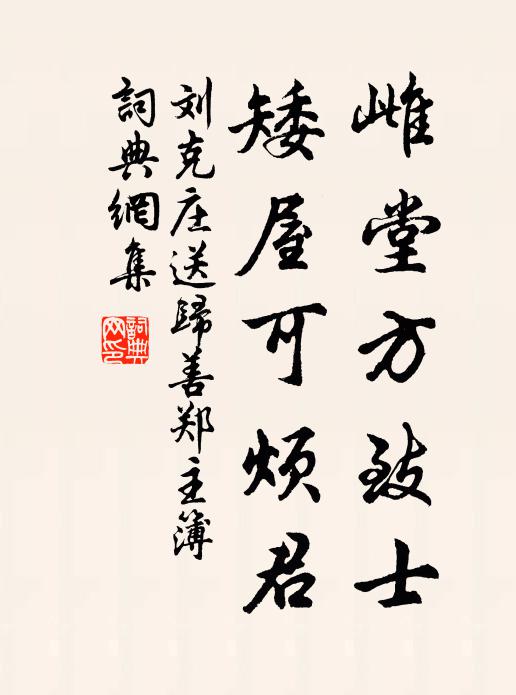 雌堂方致士
矮屋可烦君
刘克庄送歸善郑主簿
詞典網集
詞典
网印